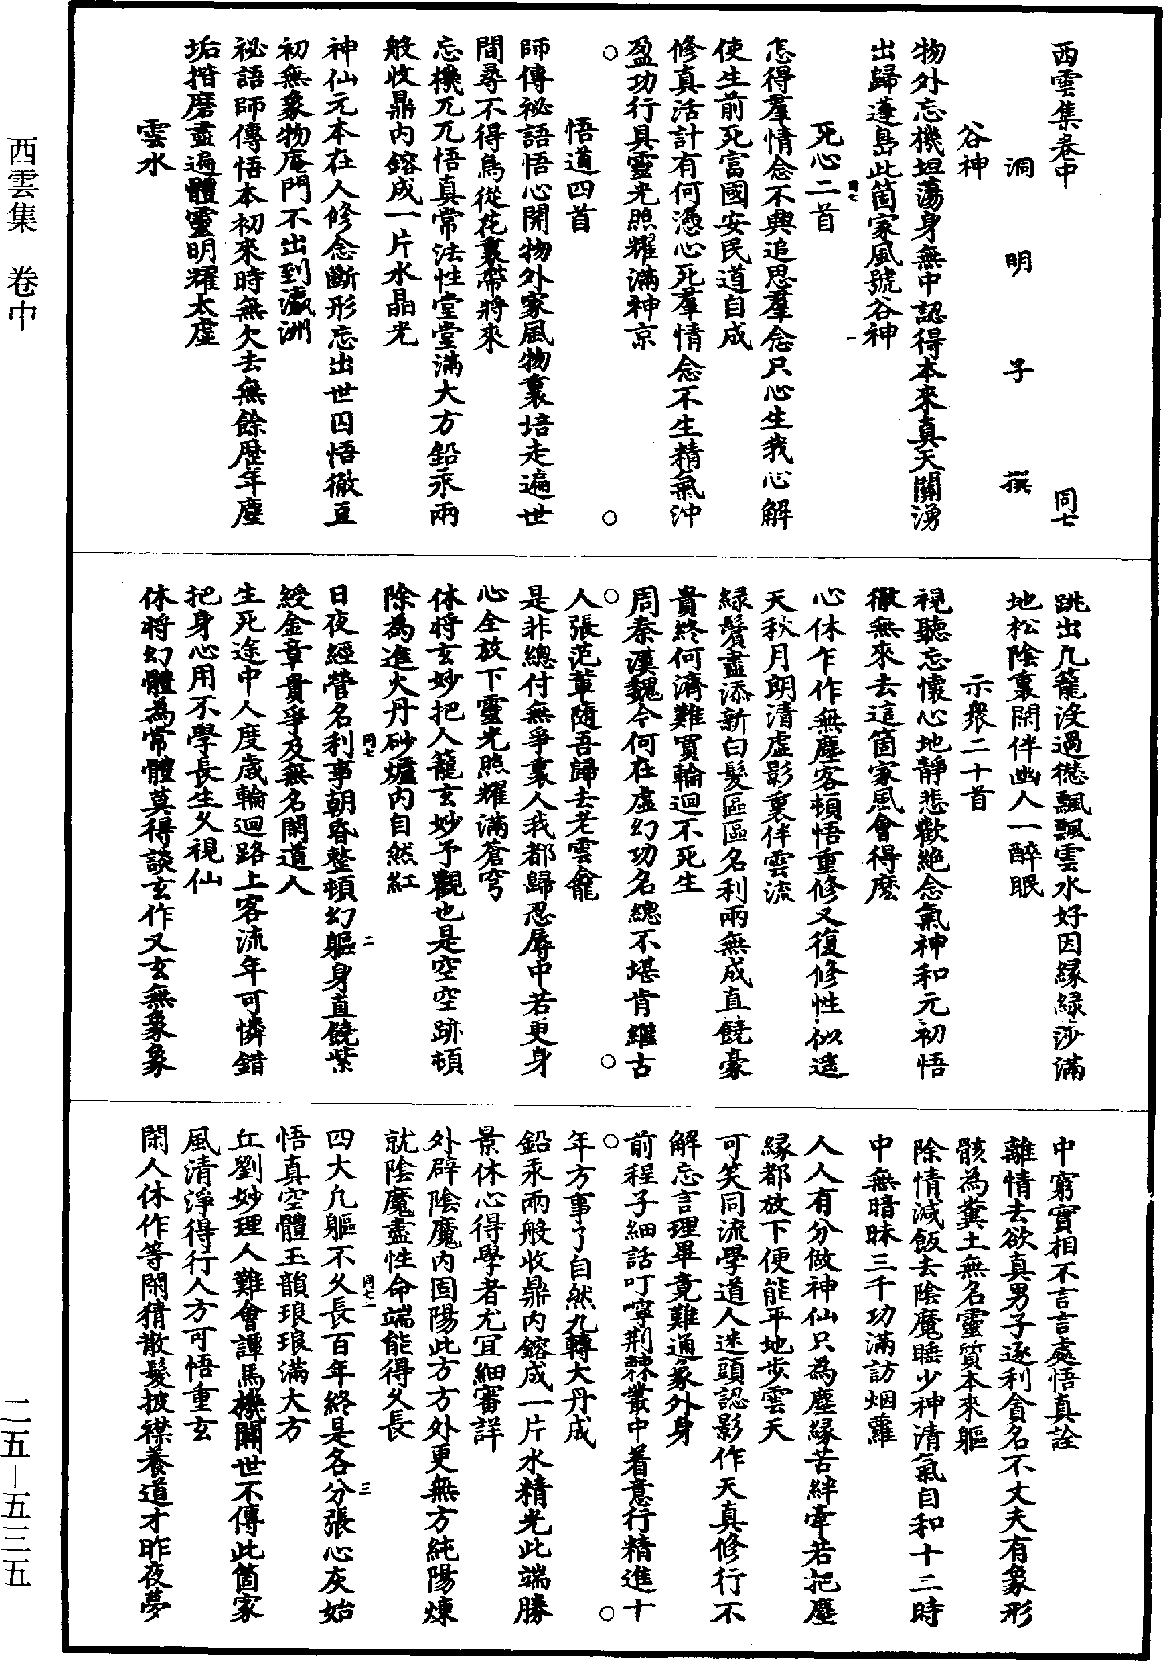 西雲集卷中　同七
洞明子撰
谷神
物外忘機坦蕩身無中認得本來真天關湧
出歸蓬島此箇家風號谷神
死心二首
怎得羣情念不興追思羣念只心生我心解
使生前死富國安民道自成
修真活計有何憑心死羣情念不生精氣沖
盈功行具靈光照耀滿神京
悟道四首
師傳祕語悟心開物外家風物裏培走遍世
間尋不得鳥從花裏帶將來
忘機兀兀悟真常法性堂堂滿大方鉛汞兩
般收鼎內鎔成一片水晶光
神仙元本在人修念斷形忘出世囚悟徹亘
初無象物庵門不出到瀛洲
祕語師傳悟本初來時無欠去無餘歷年塵
垢揩磨盡遍體靈明耀太虛
雲水
跳出凡籠沒過愆飄飄雲水好因緣綠莎滿
地松陰裏閑伴幽人一醉眠
示衆二十首
視聽忘懷心地靜悲歡絕念氣神和元初悟
徹無來去這箇家風會得麼
心休乍作無塵客頓悟重修又復修性似遠
天秋月朗清虛影裏伴雲流
綠鬢盡添新白髮區區名利兩無成直饒豪
貴終何濟難買輪迴不死生
周秦漢魏今何在虛幻功名總不堪肯繼古
人張范輩隨吾歸去老雲龕
是非總付無爭裏人我都歸忍辱中若更身
心全放下靈光照耀滿蒼穹
休將玄妙把人籠玄妙予觀也是空空跡頓
除為進火丹砂爐內自然紅
日夜經營名利事朝昏整頓幻軀身直饒紫
綬金章貴爭及無名閑道人
生死途中人度歲輪迴路上客流年可憐錯
把身心用不學長生久視仙
休將幻體為常體莫得談玄作又玄無象象
中窮實相不言言處悟真詮
離情去欲真男子逐利貪名不丈夫有象形
骸為糞土無名靈質本來軀
除情減飯去陰魔睡少神清氣自和十二時
中無暗昧三千功滿訪烟蘿
人人有分做神仙只為塵緣苦絆牽若把塵
緣都放下便能平地步雲天
可笑同流學道人迷頭認影作天真修行不
解忘言理畢竟難通象外身
前程子細話叮嚀荆棘叢中着意行精進十
年方事了自然九轉大丹成
鉛汞兩般收鼎內鎔成一片水精光此端勝
景休心得學者尤宜細審詳
外辟陰魔內固陽此方方外更無方純陽煉
就陰魔盡性命端能得久長
四大凡軀不久長百年終是各分張心灰始
悟真空體玉韻琅琅滿大方
丘劉妙理人難會譚馬機關世不傳此箇家
風清淨得行人方可悟重玄
閑人休作等閑猜散髮披襟養道才昨夜夢
西雲集　卷中
二五—五三五